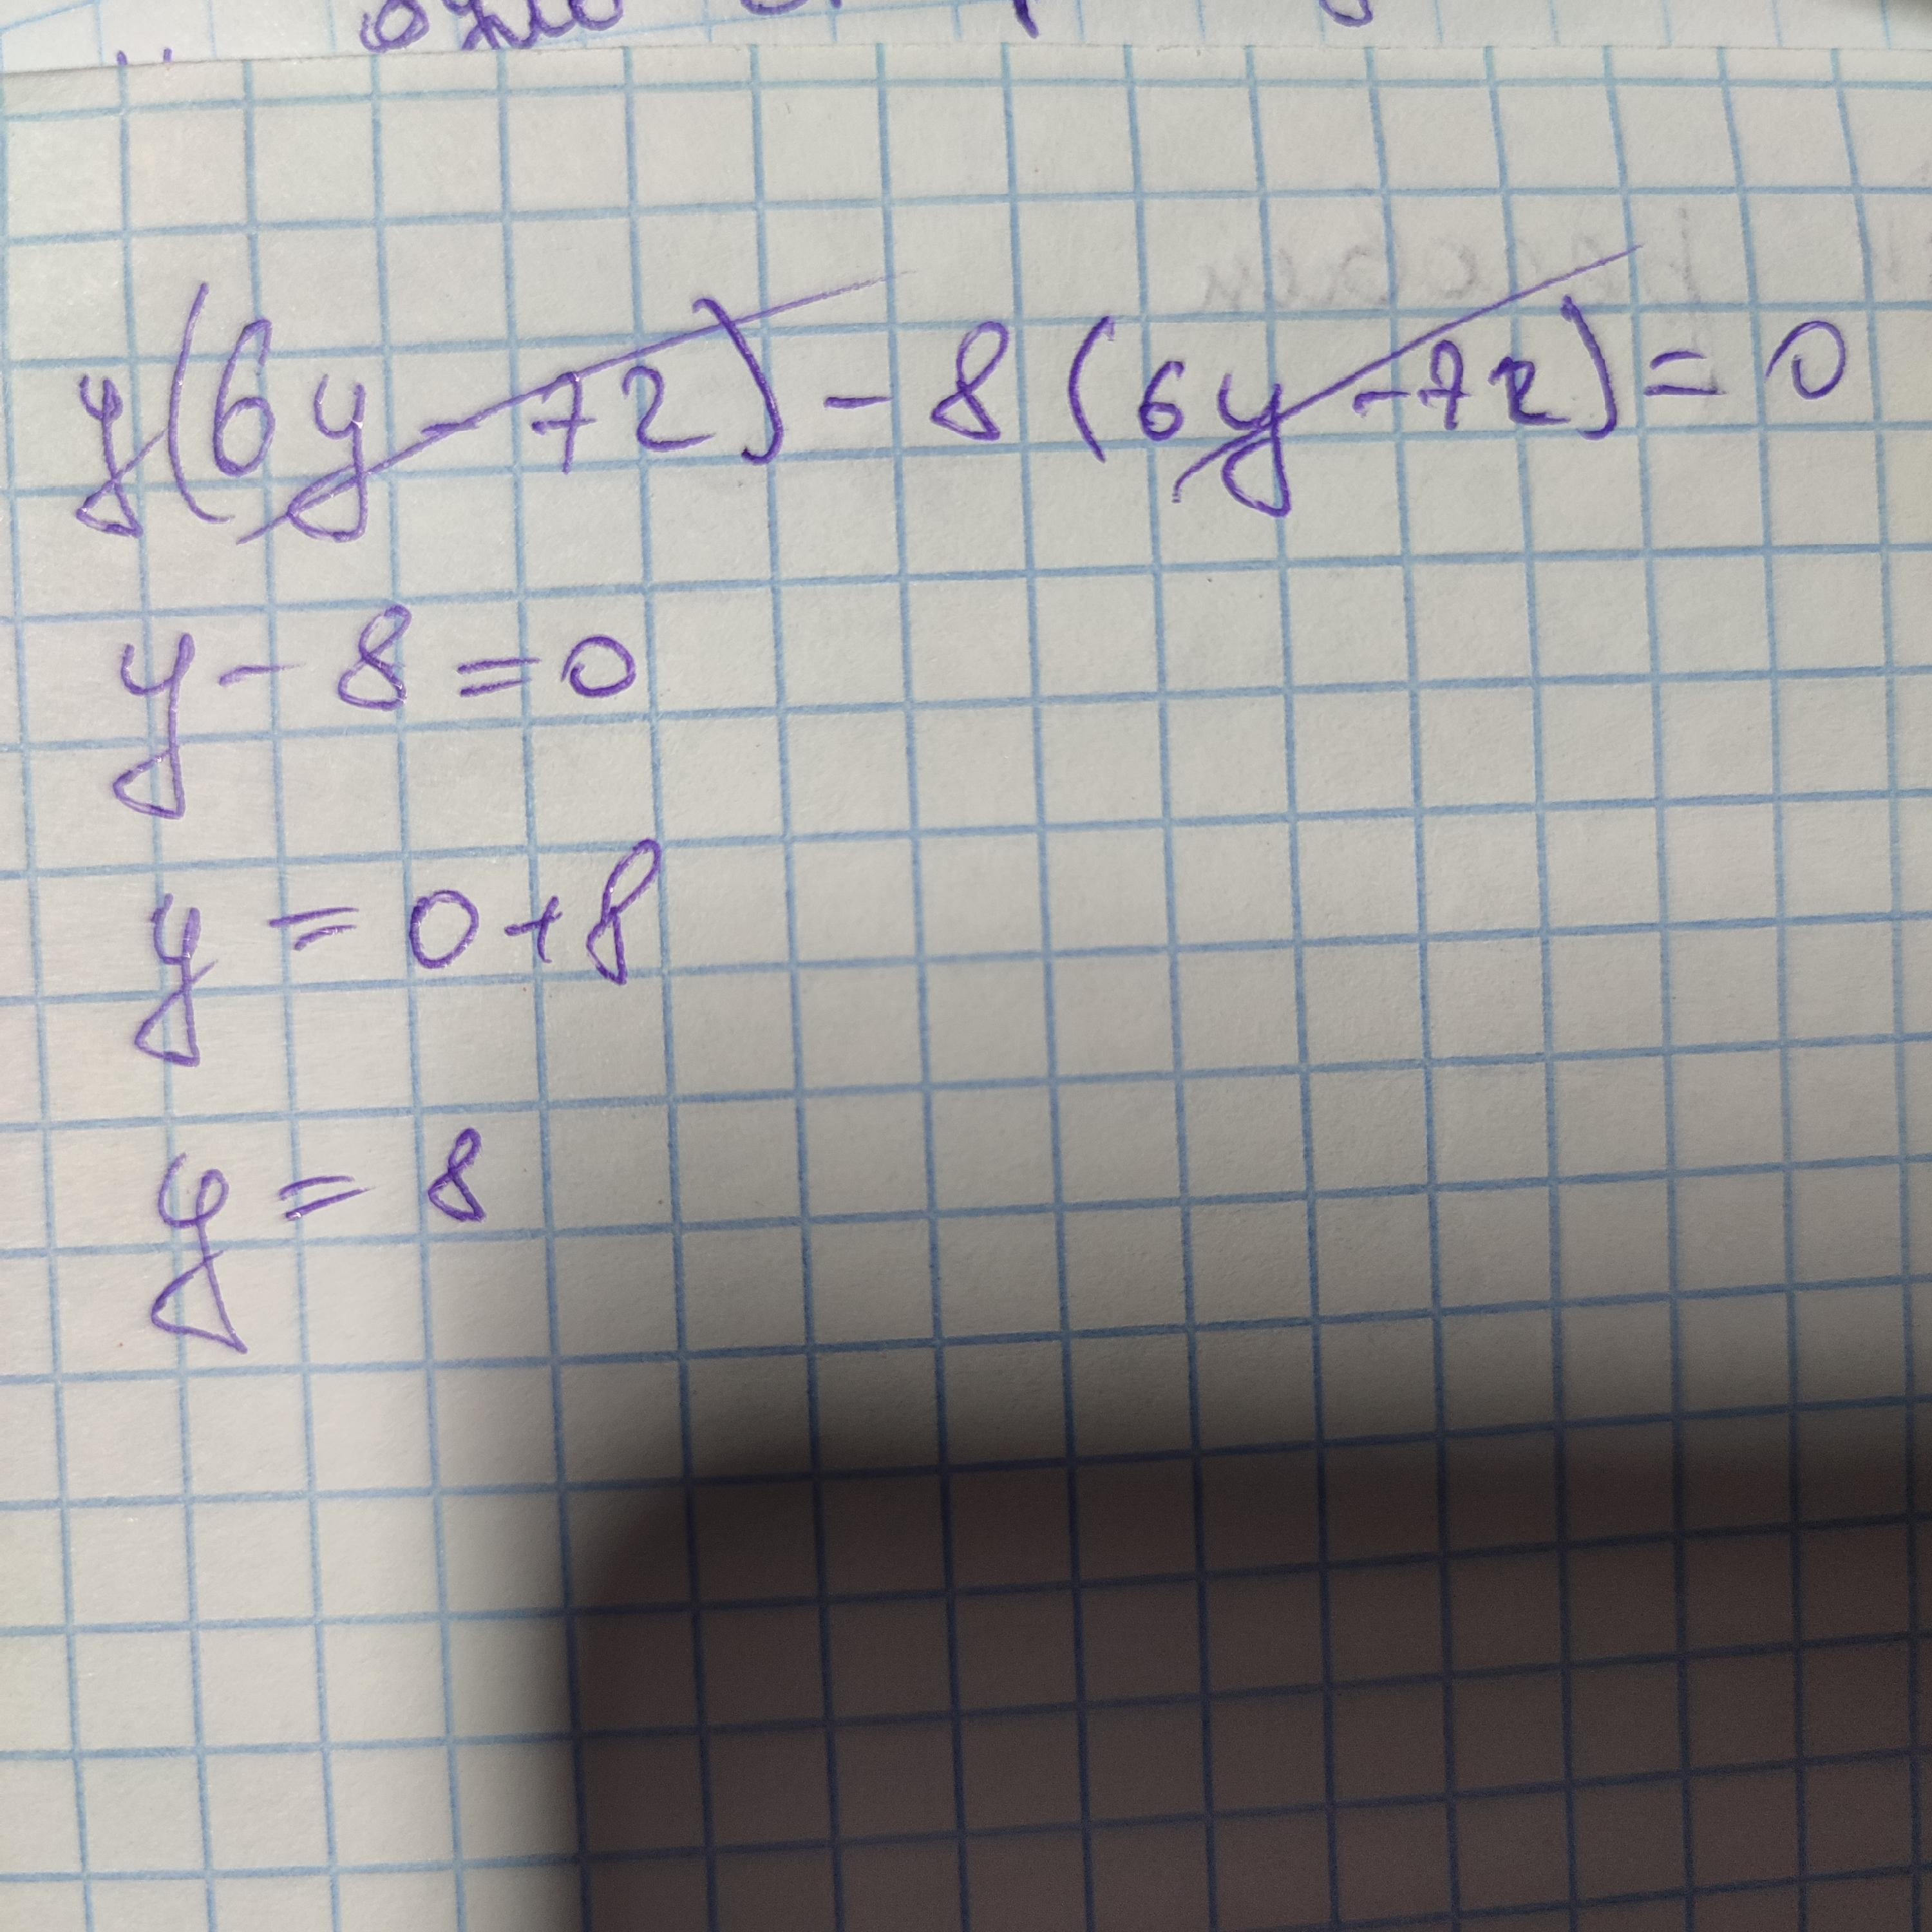 y(6y - 72) - 8 (6y - 72) = 0
y - 8 = 0
y = 0 + 8
y = 8